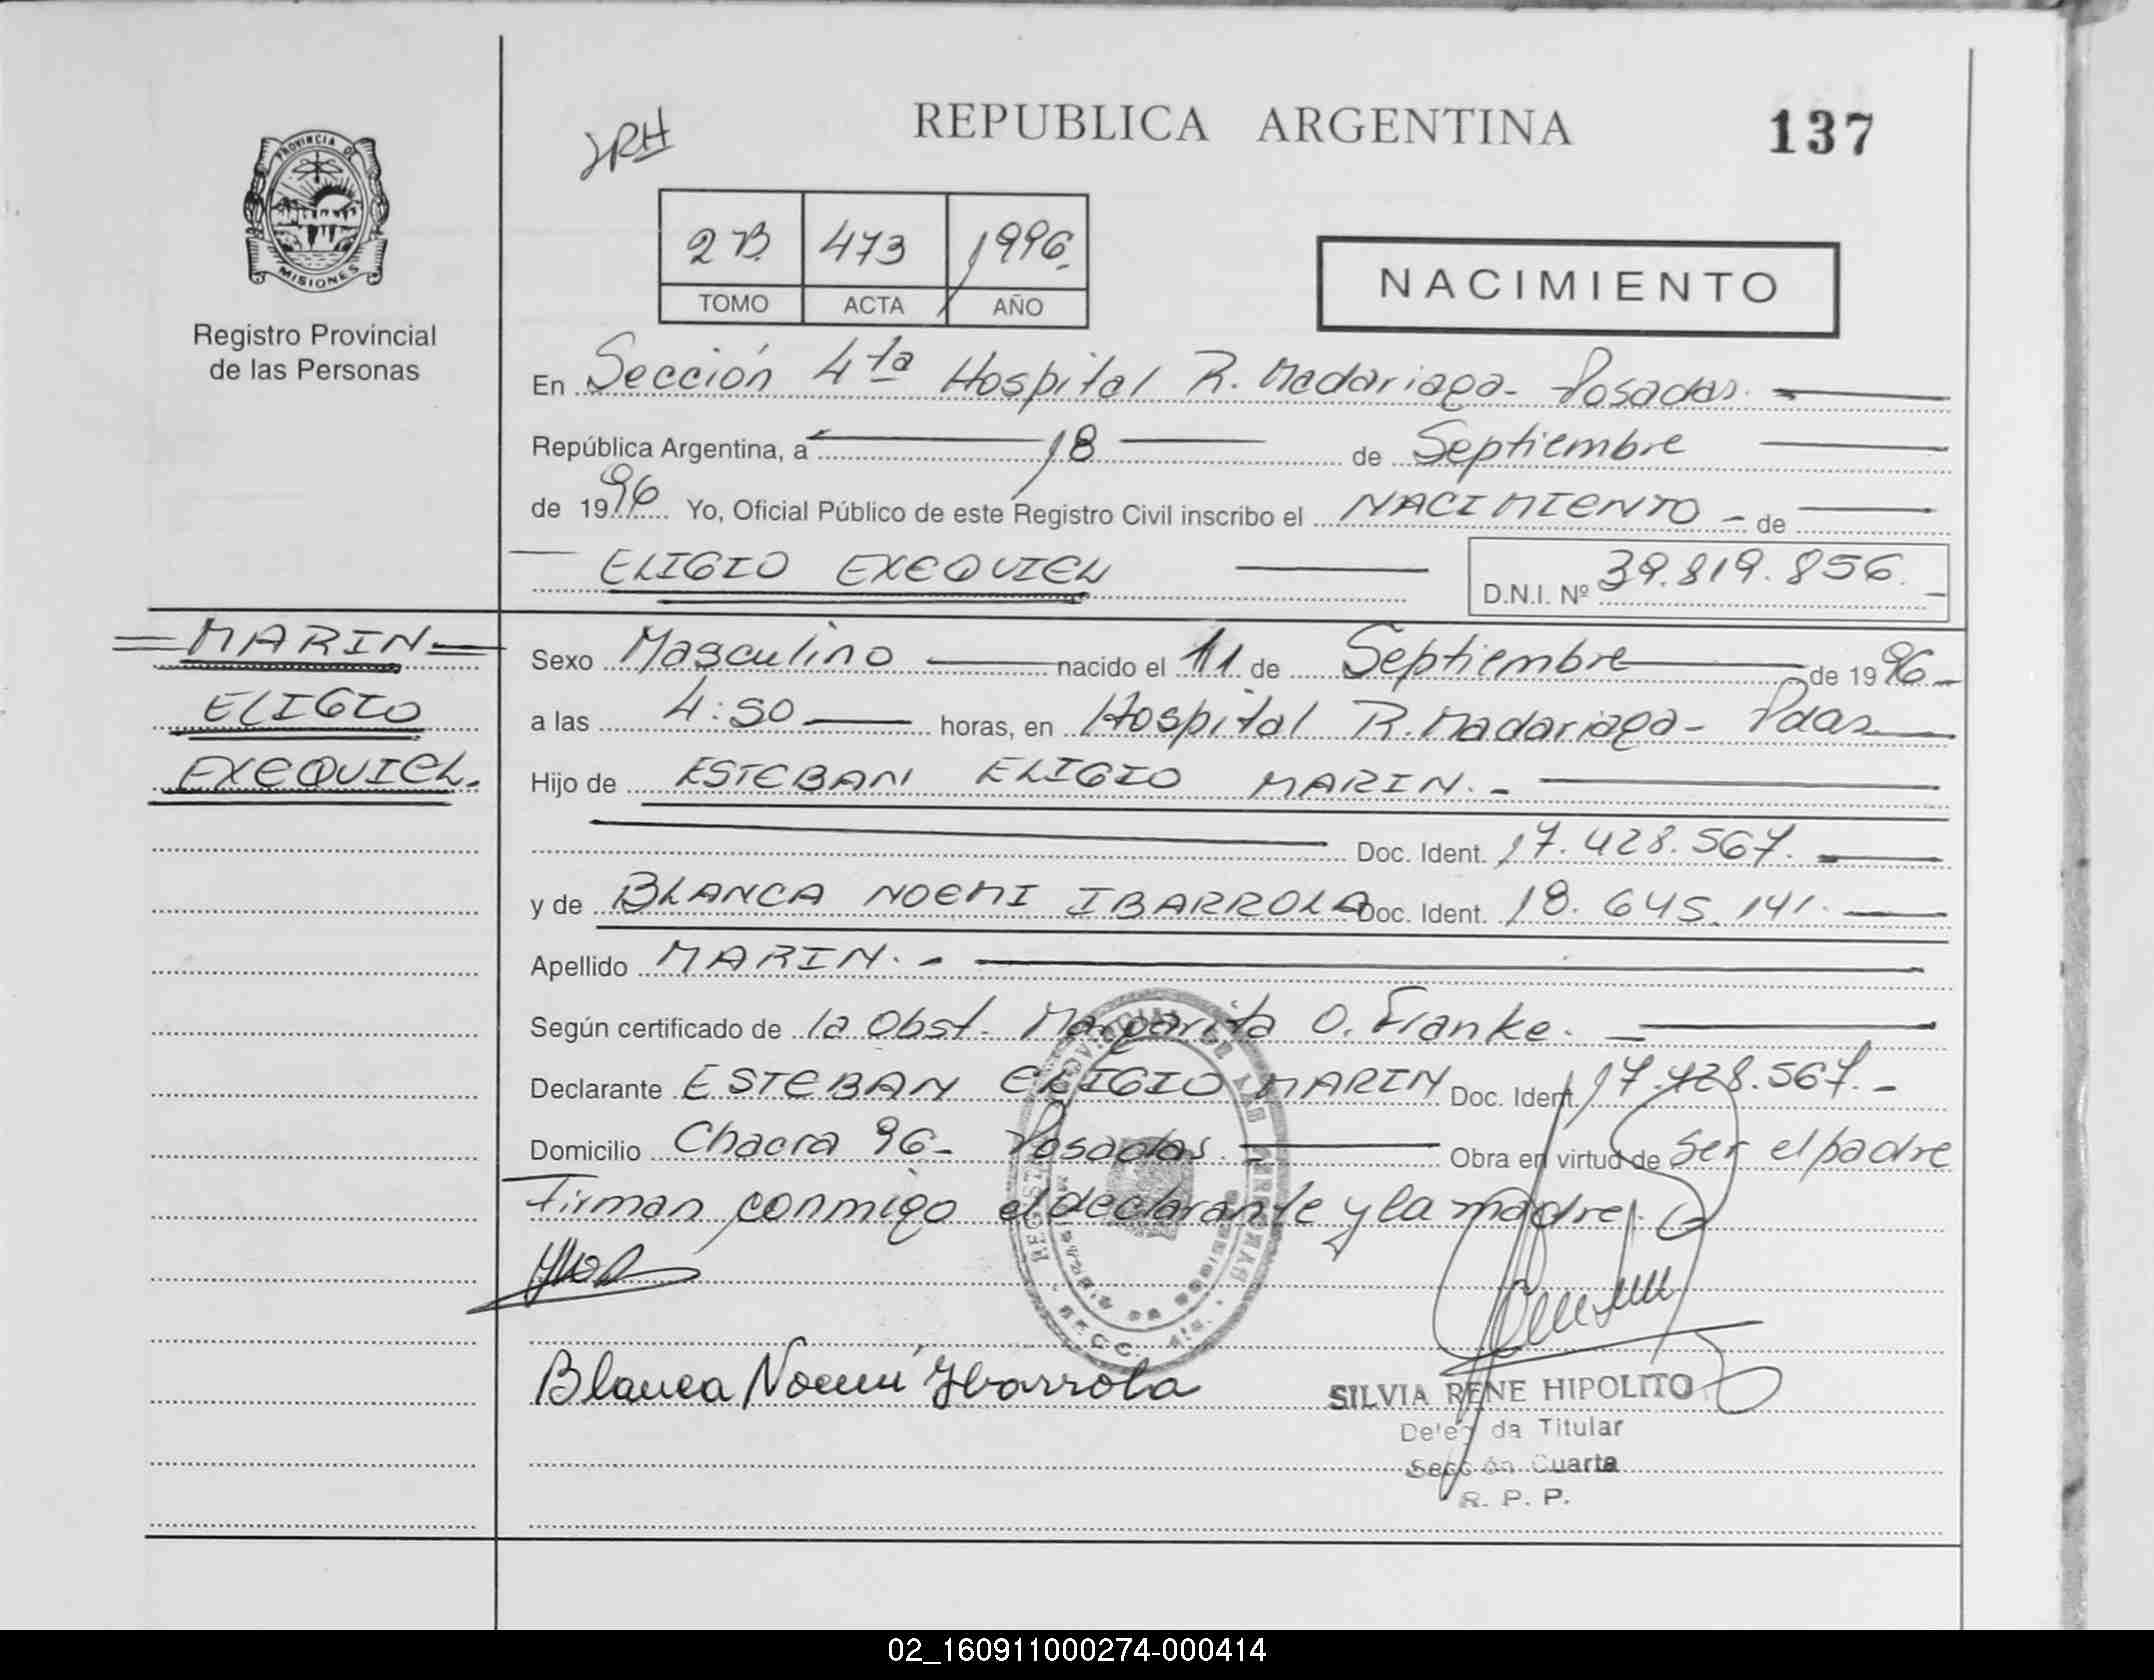 REPUBLICA ARGENTINA
137
SRH
PROVINCIA DE
MISIONES
Registro Provincial
de las Personas
2B 473 1996
TOMO ACTA AÑO
NACIMIENTO
En Sección 4ta Hospital R. Madariaga - Posadas.
República Argentina, a 18 de Septiembre
de 1996 Yo, Oficial Público de este Registro Civil inscribo el NACIMIENTO - de
ELIGIO EXEQUIEL D.N.I. Nº 39.819.856.
MARIN
ELIGIO
EXEQUIEL.
Sexo Masculino nacido el 11 de Septiembre de 1996
a las 4:50 horas, en Hospital R. Madariaga - Pdas
Hijo de ESTEBAN ELIGIO MARIN. -
Doc. Ident. 17.428.567.
y de BLANCA NOEMI IBARROLA Doc. Ident. 18.645.141.
Apellido MARIN. -
Según certificado de la Obst. Margarita O. Franke.
Declarante ESTEBAN ELIGIO MARIN Doc. Ident. 17.428.567. -
Domicilio Chacra 96 - Posadas. Obra en virtud de Ser el padre
Firman conmigo el declarante y la madre.
Blanca Noemi Ibarrola
SILVIA RENE HIPOLITO
Delegada Titular
Sección Cuarta
R. P. P.
02_160911000274-000414